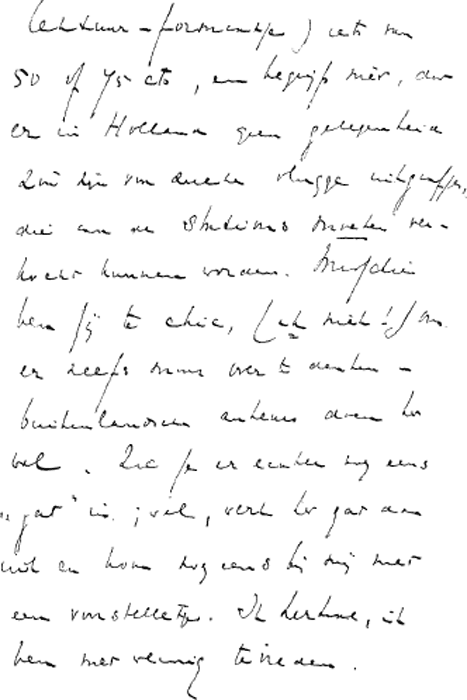 lectuur-formaatje) iets van
50 of 75 cts, en begrijp niet, dat
er in Holland geen gelegenheid
zou zijn van zulke vlugge uitgaffen,
die aan de Stations moeten ver-
kocht kunnen worden. Misschien
ben jij te chic, (ik niet!) om
er zelfs maar over te denken -
buitenlandsche auteurs doen het
wel. Zie je er echter nog eens
"gat" in, vul, werk het gat dan
uit en kom nog eens bij mij met
een voorstelletje. Ik herhaal, ik
ben met weinig tevreden.